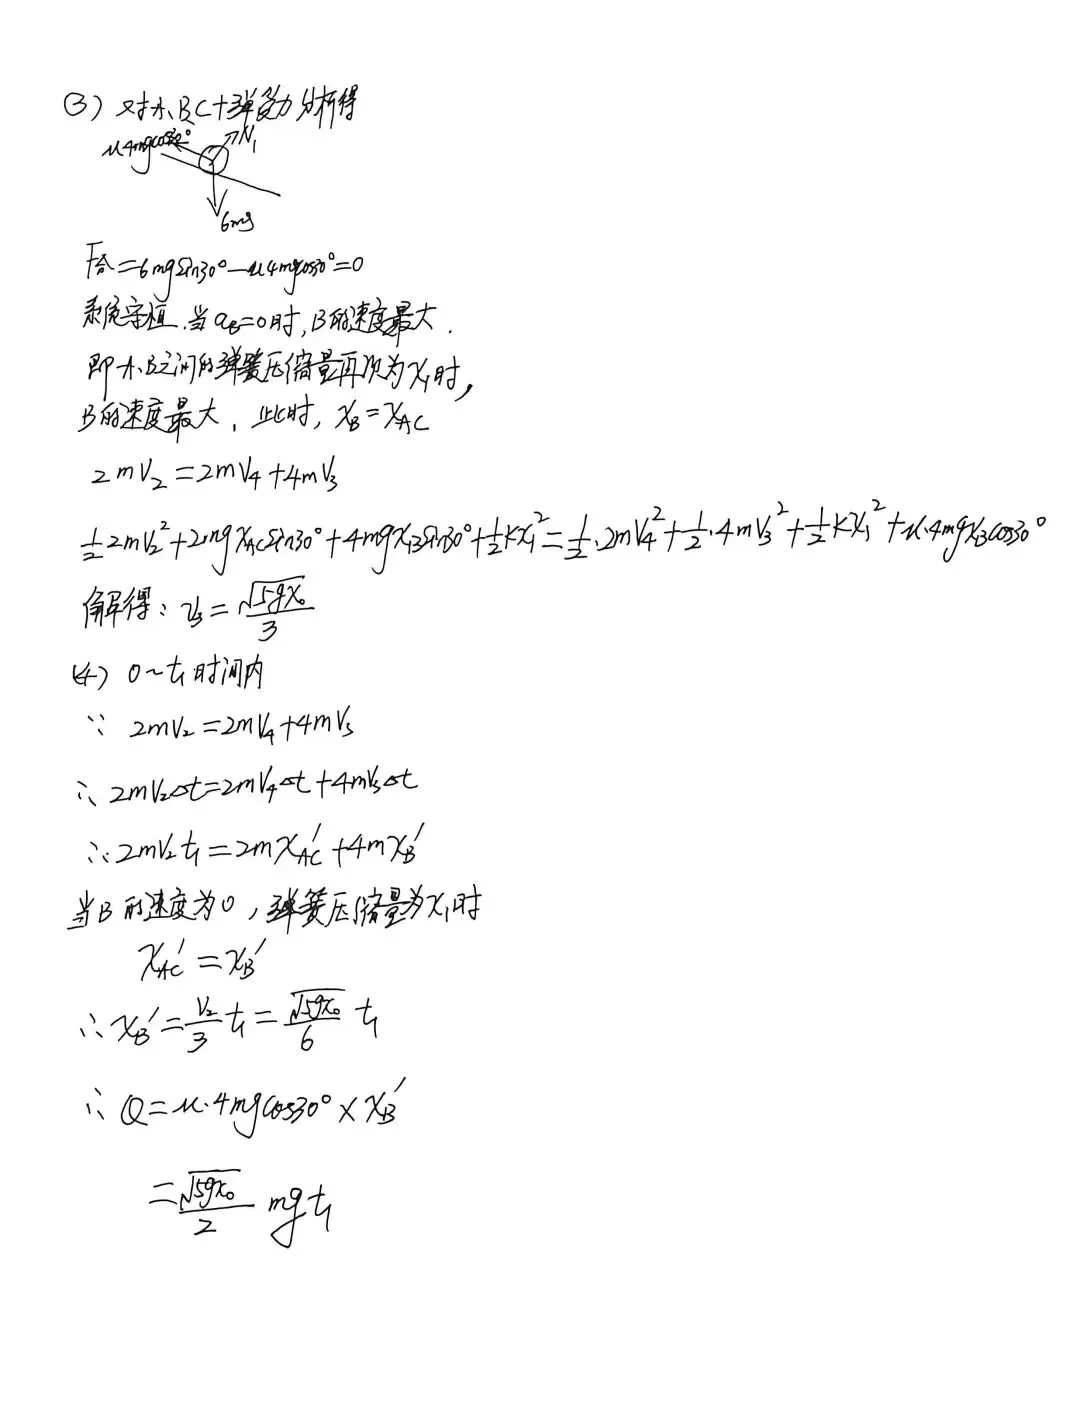 (3) 对A、B、C+弹簧受力分析得
μ4mgcos30°
N₁
6mg
F合=6mgsin30°-μ4mgcos30°=0
系统守恒.当aB=0时,B的速度最大.
即A、B之间的弹簧压缩量再次为x₁时,
B的速度最大,此时,xB=xAC
2mV₂=2mV₄+4mV₃
½2mV₂²+2mgxACsin30°+4mgxBsin30°+½kx₁²=½·2mV₄²+½·4mV₃²+½kx₁²+μ·4mgxBcos30°
解得:v₃=√(5gx₀)/3
(4) 0~t₁时间内
∵ 2mV₂=2mV₄+4mV₃
∴2mV₂Δt=2mV₄Δt+4mV₃Δt
∴2mV₂t₁=2mxAC′+4mxB′
当B的速度为0,弹簧压缩量为x₁时
xAC′=xB′
∴xB′=V₂/3 t₁=√(5gx₀)/6 t₁
∴Q=μ·4mgcos30°×xB′
=√(5gx₀)/2 mgt₁